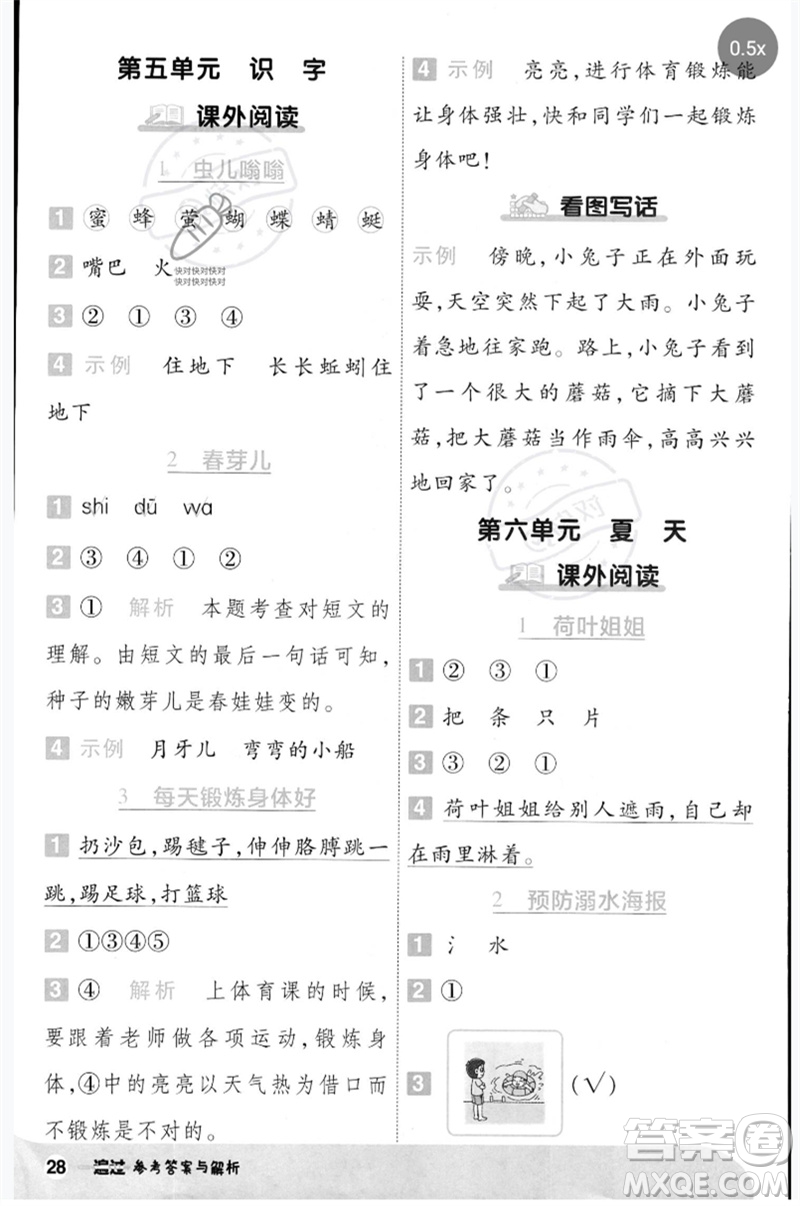 第五单元 识 字
课外阅读
1 虫儿嗡嗡
1 蜜 蜂 萤 蝴 蝶 蜻 蜓
2 嘴巴 火
快对快对快对
快对快对快对
3 ② ① ③ ④
4 示例 住地下 长长蚯蚓住
地下
2 春芽儿
1 shi dū wa
2 ③ ④ ① ②
3 ① 解析 本题考查对短文的
理解。由短文的最后一句话可知,
种子的嫩芽儿是春娃娃变的。
4 示例 月牙儿 弯弯的小船
3 每天锻炼身体好
1 扔沙包,踢毽子,伸伸胳膊跳一
跳,踢足球,打篮球
2 ①③④⑤
3 ④ 解析 上体育课的时候,
要跟着老师做各项运动,锻炼身
体,④中的亮亮以天气热为借口而
不锻炼是不对的。
28 追过 参考答案与解析
0.5x
4 示例 亮亮,进行体育锻炼能
让身体强壮,快和同学们一起锻炼
身体吧!
看图写话
示例 傍晚,小兔子正在外面玩
耍,天空突然下起了大雨。小兔子
着急地往家跑。路上,小兔子看到
了一个很大的蘑菇,它摘下大蘑
菇,把大蘑菇当作雨伞,高高兴兴
地回家了。
第六单元 夏 天
课外阅读
1 荷叶姐姐
1 ② ③ ①
2 把 条 只 片
3 ③ ② ①
4 荷叶姐姐给别人遮雨,自己却
在雨里淋着。
2 预防溺水海报
1 氵 水
2 ①
3 (√)
答案圈
MXQE.COM